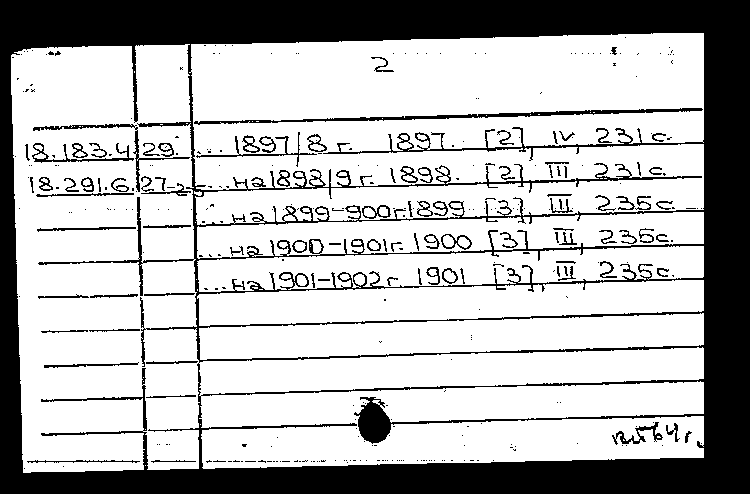 2
18.183.4.29. ... 1897/8 г. 1897. [2], IV, 231 с.
18.291.6.27-25 ... на 1898/9 г. 1898. [2], III, 231 с.
... на 1899-900 г. 1899 [3], III, 235 с.
... на 1900-1901 г. 1900 [3], III, 235 с.
... на 1901-1902 г. 1901 [3], III, 235 с.
64 г.